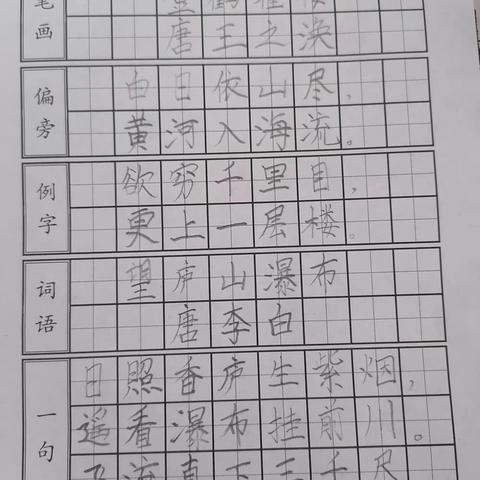 笔画
登鹳雀楼
唐王之涣
偏旁
白日依山尽，
黄河入海流。
例字
欲穷千里目，
更上一层楼。
词语
望庐山瀑布
唐李白
一句
日照香庐生紫烟，
遥看瀑布挂前川。
飞流直下三千尺